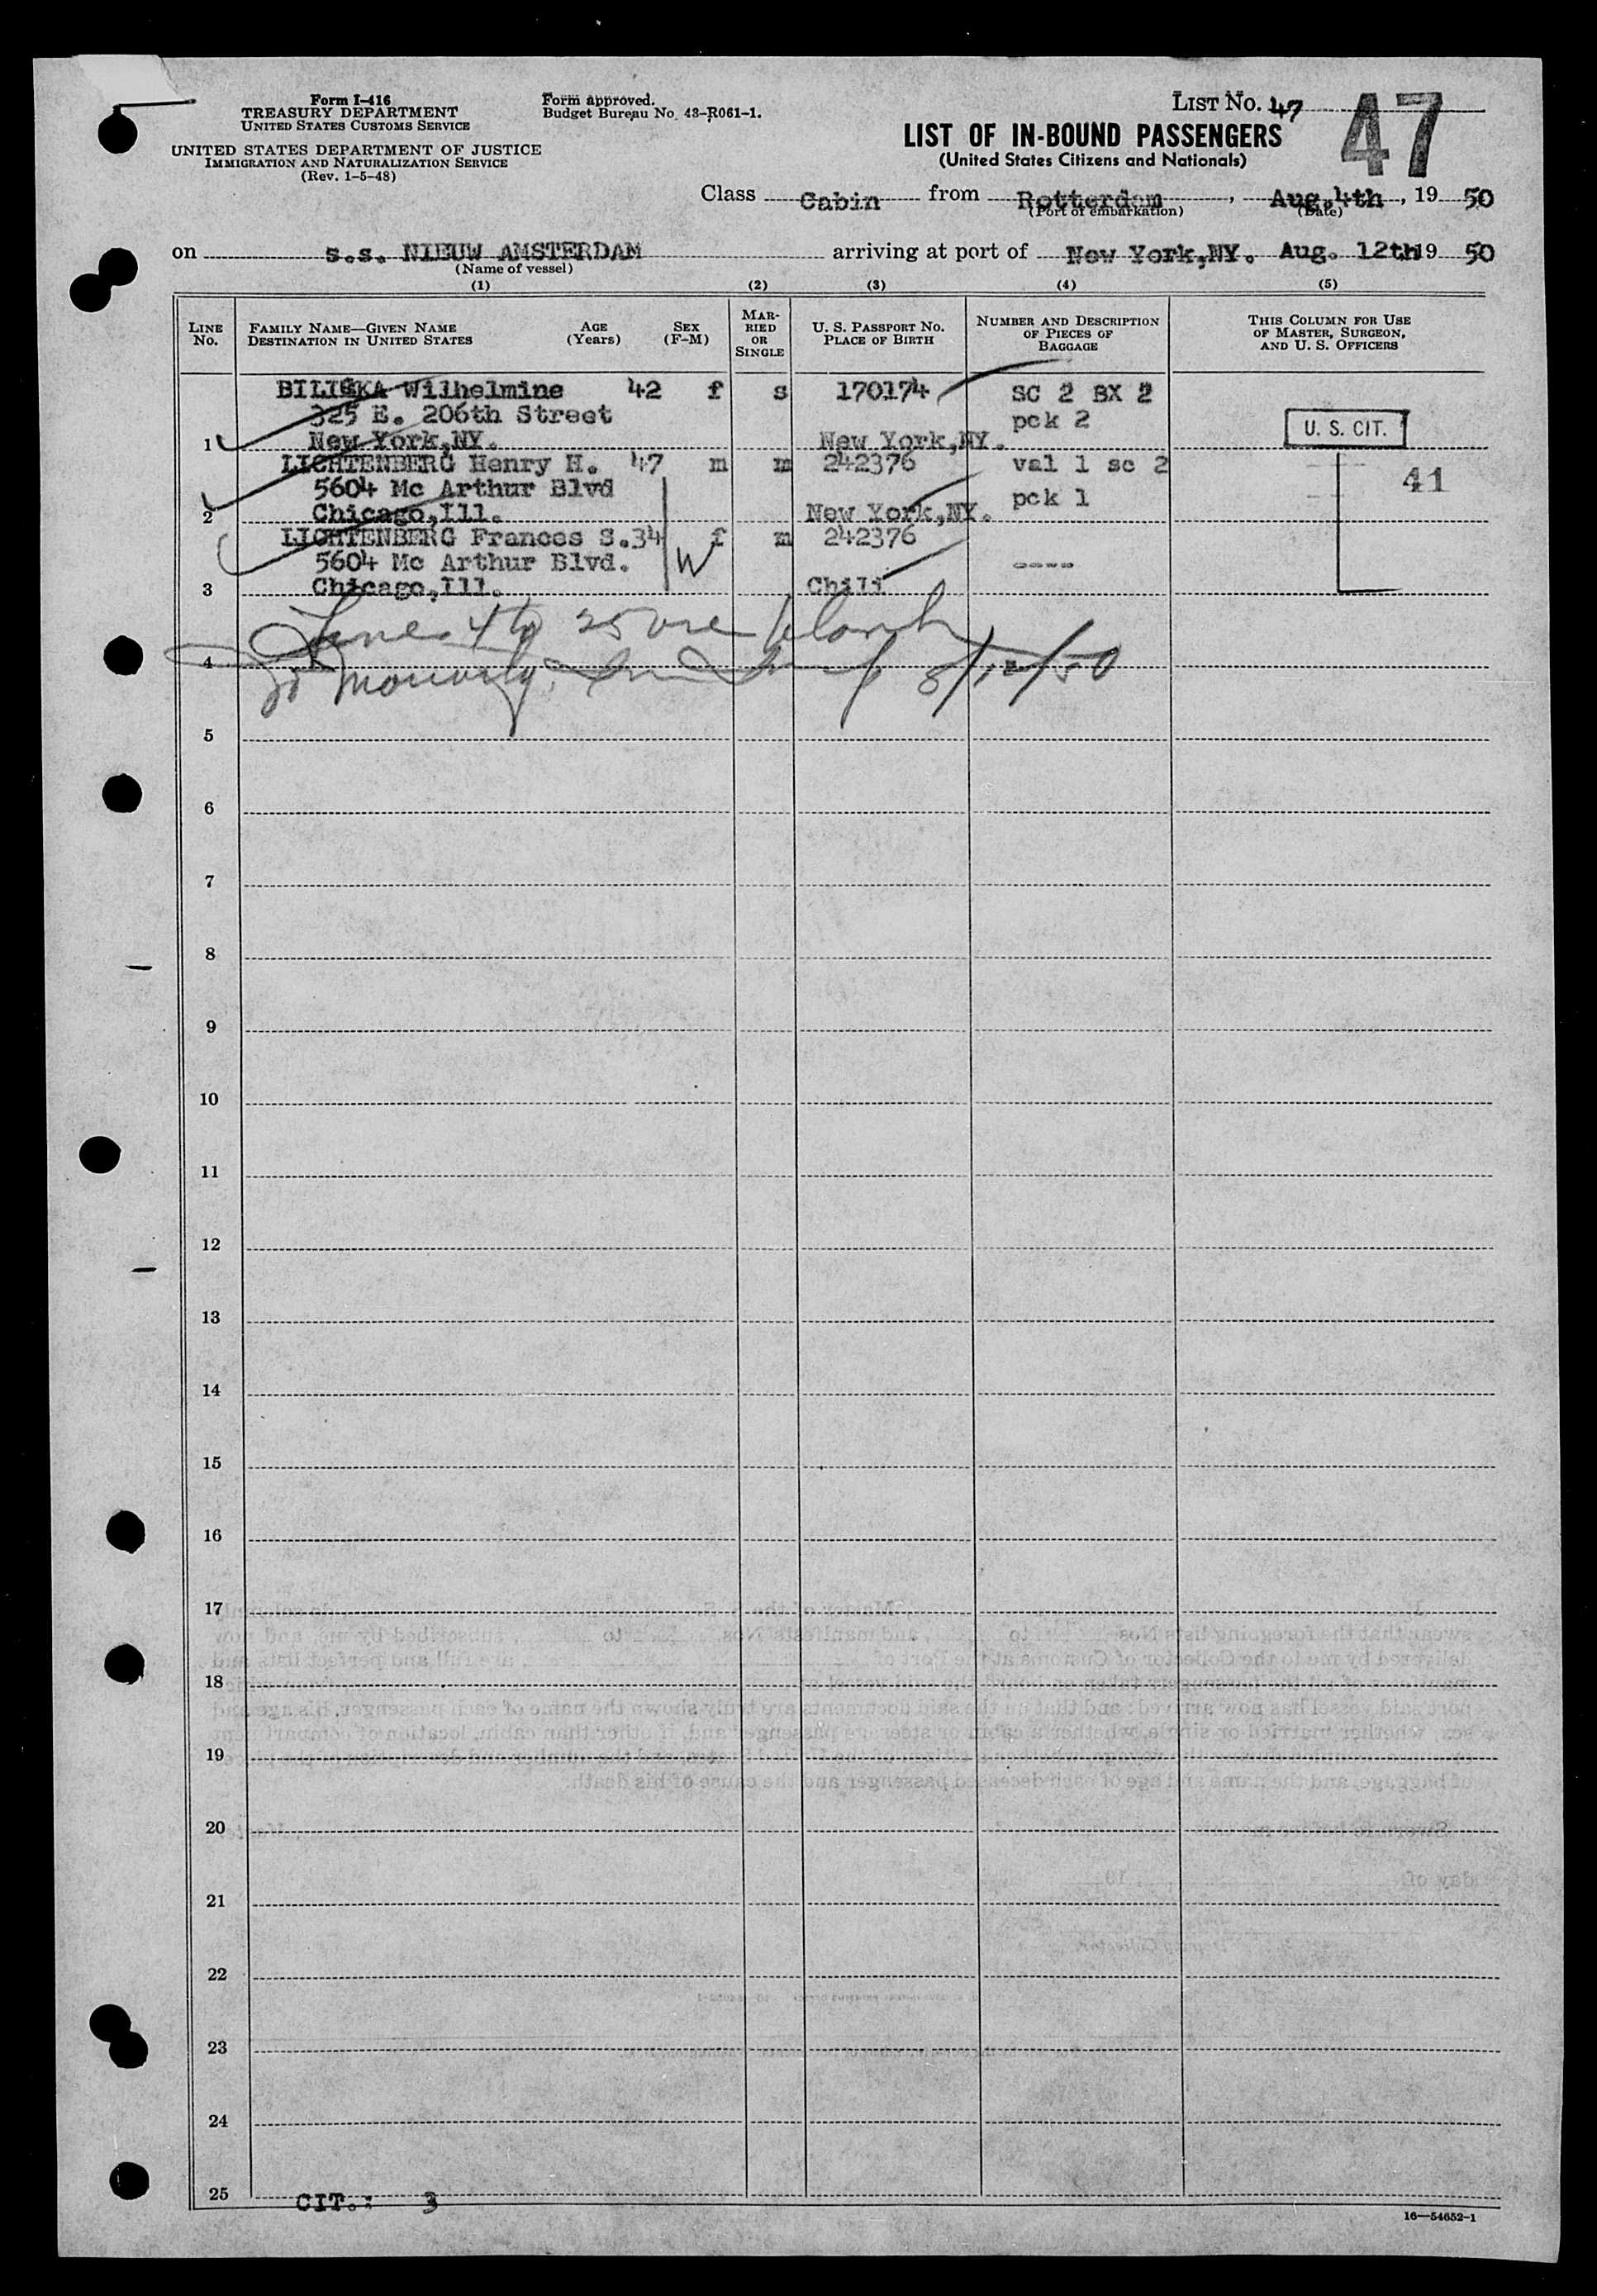 Form I-416
TREASURY DEPARTMENT
UNITED STATES CUSTOMS SERVICE
UNITED STATES DEPARTMENT OF JUSTICE
IMMIGRATION AND NATURALIZATION SERVICE
(Rev. 1-5-48)
Form approved.
Budget Bureau No. 43-R061-1.
LIST NO. 47
47
LIST OF IN-BOUND PASSENGERS
(United States Citizens and Nationals)
Class Cabin from Rotterdam, Aug.4th, 19 50
(Port of embarkation) (Date)
on s.s. NIEUW AMSTERDAM arriving at port of New York,NY. Aug. 12th 19 50
(Name of vessel)
(1) (2) (3) (4) (5)
LINE NO.
FAMILY NAME—GIVEN NAME
DESTINATION IN UNITED STATES
AGE (Years)
SEX (F-M)
MARRIED OR SINGLE
U. S. PASSPORT NO.
PLACE OF BIRTH
NUMBER AND DESCRIPTION OF PIECES OF BAGGAGE
THIS COLUMN FOR USE OF MASTER, SURGEON, AND U. S. OFFICERS
BILISKA Wilhelmine 42 f s 170174 SC 2 BX 2
325 E. 206th Street pck 2 U. S. CIT.
1 New York,NY. New York,NY.
LICHTENBERG Henry H. 47 m m 242376 val 1 sc 2
5604 Mc Arthur Blvd pck 1 41
2 Chicago,Ill. New York,NY.
LICHTENBERG Frances S.34 f m 242376
5604 Mc Arthur Blvd. W ----
3 Chicago,Ill. Chili
Lines 4 to 25 are blank
4 8/12/50
5
6
7
8
9
10
11
12
13
14
15
16
17
18
19
20
21
22
23
24
25 CIT.: 3
16—54652-1